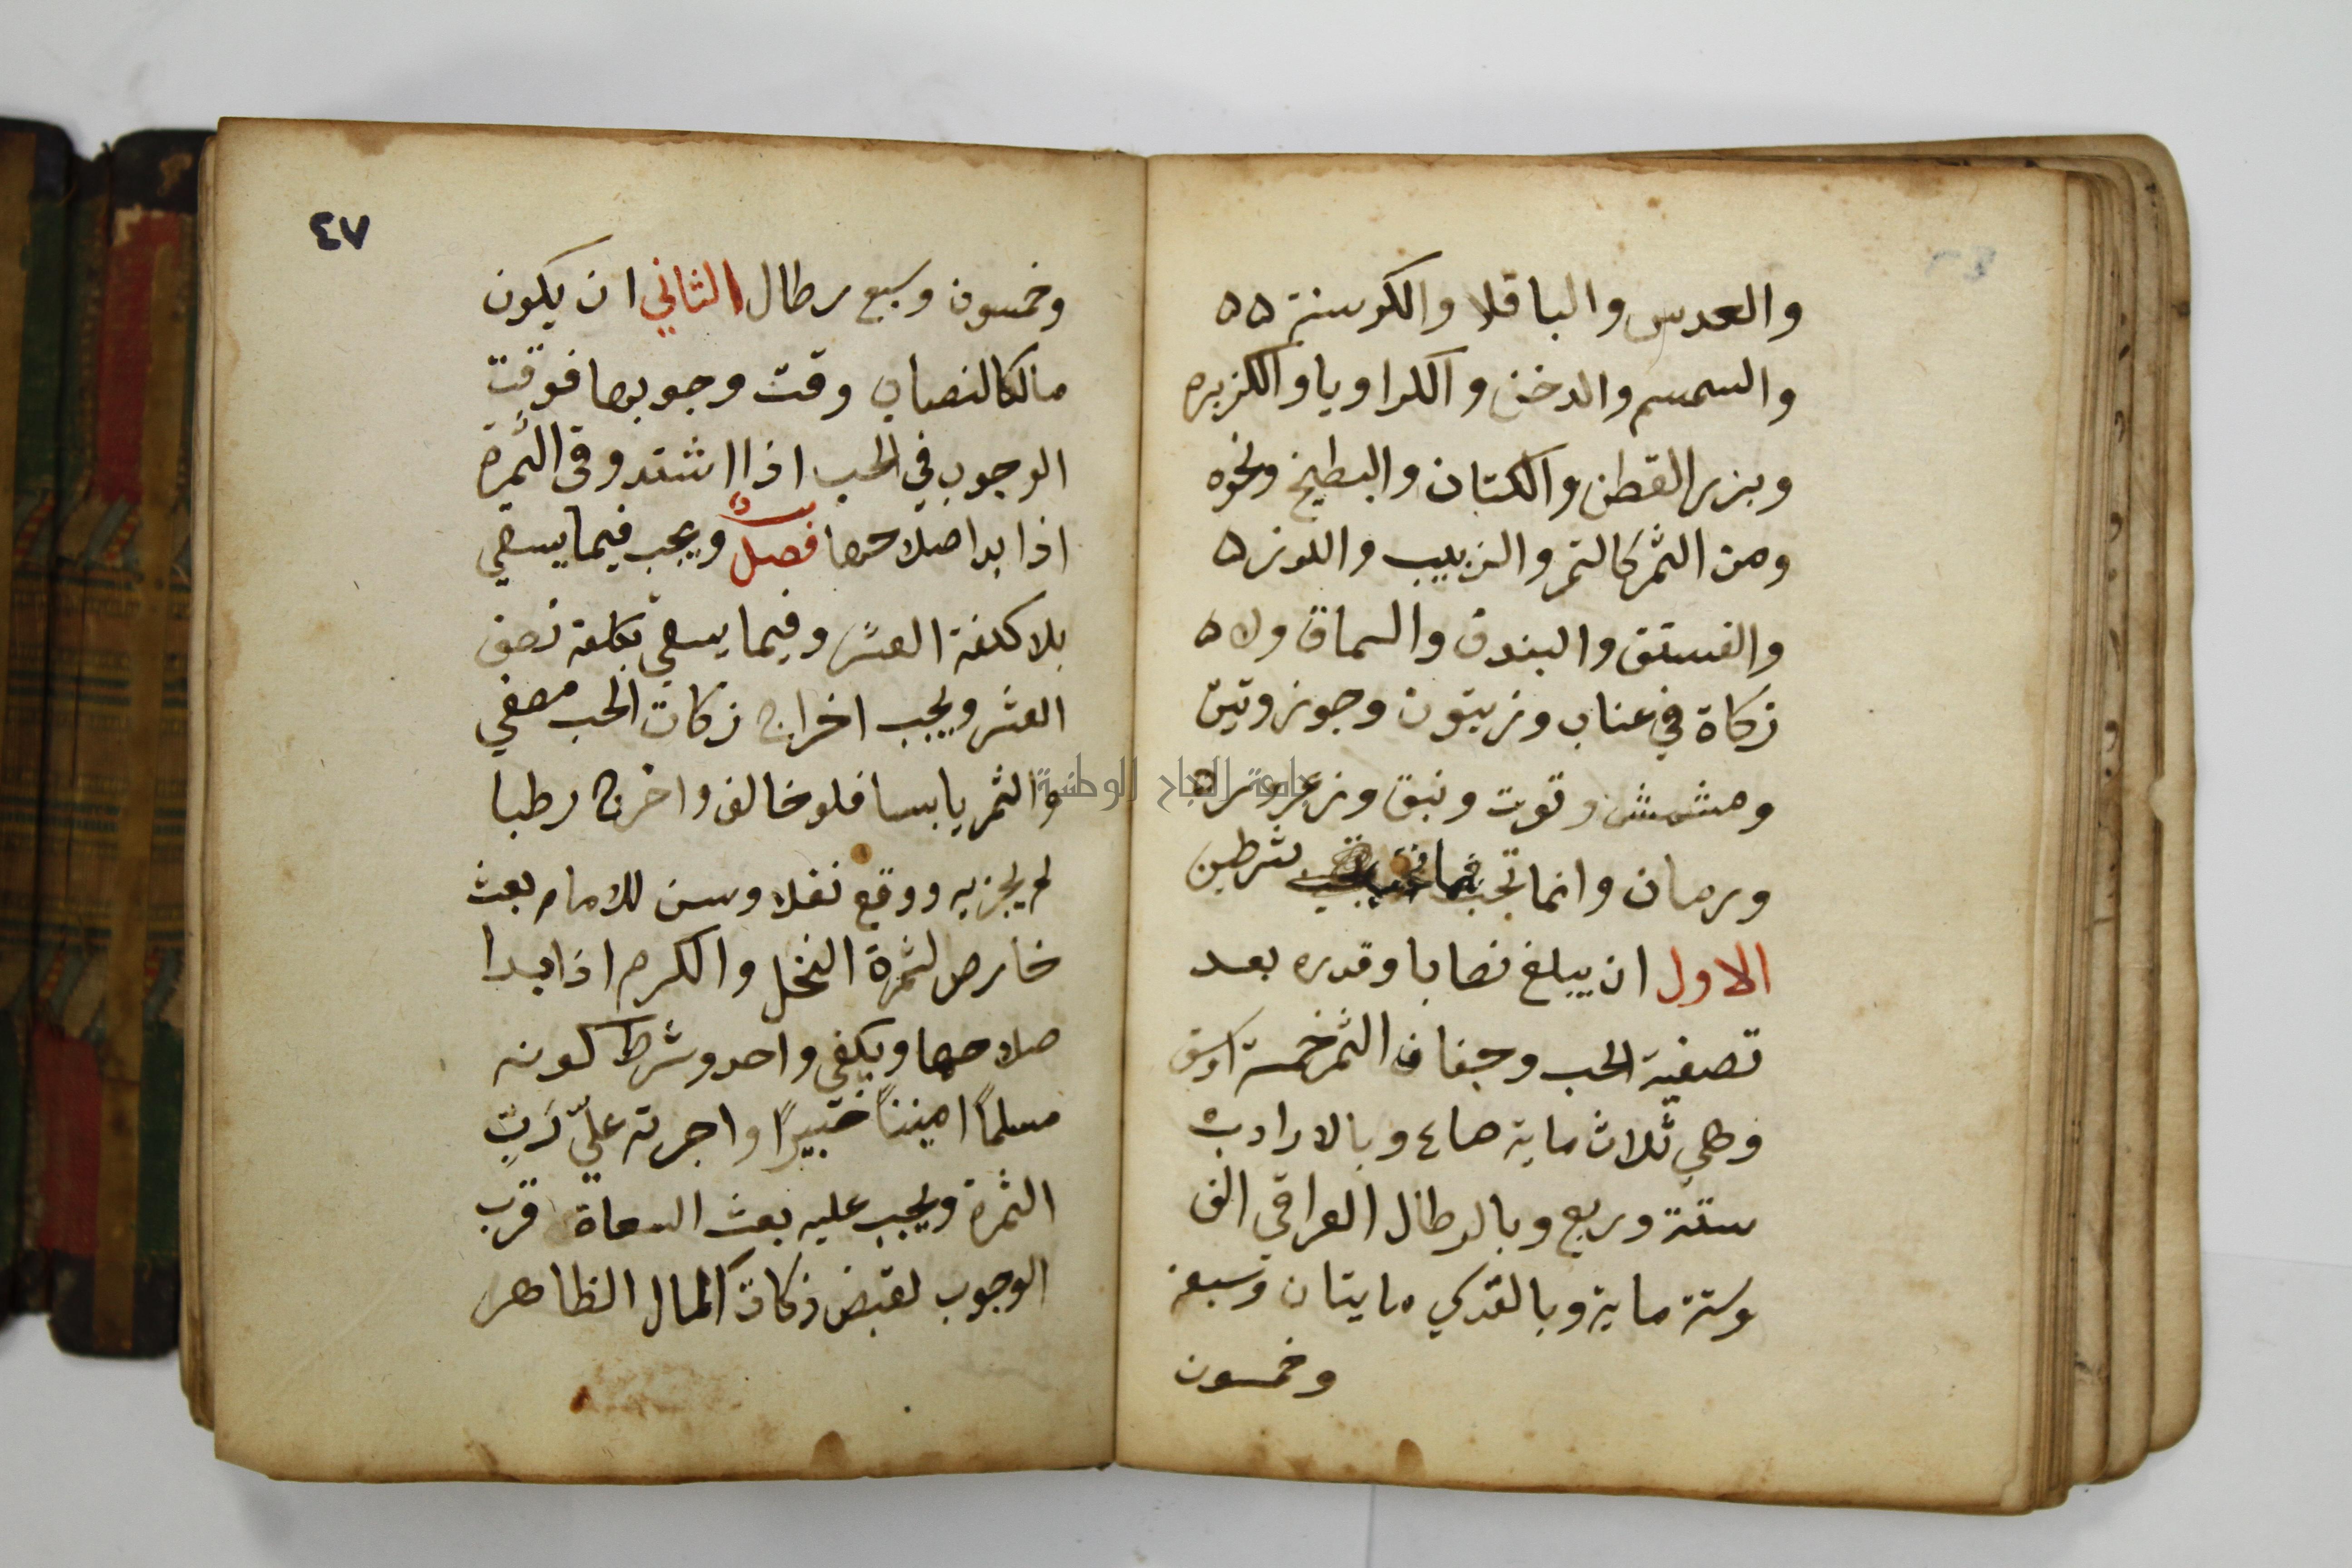 والعدس والباقلا والكرسنة ۵۵
والسمسم والدخن والكراويا والكزبره
وبزر القطن والكتان والبطيخ ونحوه
ومن الثمر كالتمر والزبيب واللوز ۵
والفستق والبندق والسماق ولا ۵
زكاة في عناب وزيتون وجوز وتين
ومشمش وتوت ونبق وزعرور
ورمان وانما تجب فيما تجب بشرطين
الاول ان يبلغ نصابا وقدره بعد
تصفية الحب وجفاف الثمر خمسة اوسق
وهي ثلاث ماية صاع وبالارادب
ستة وربع وبالرطال العراقي الف
وستة ماية وبالقدسي مايتان وسبعة
وخمسون
٤٧
وخمسون وسبع رطال الثاني ان يكون
مالكا لنصاب وقت وجوبها فوقت
الوجوب في الحب اذا اشتد وفي الثمرة
اذا بدا صلاحها فصل ويجب فيما يسقي
بلا كلفة العشر وفيما يسقي بكلفة نصف
العشر ويجب اخراج زكات الحب مصفي
والثمر يابسا فلو خالف واخرج رطبا
لم يجزيه ووقع نفلا وسن للامام بعث
خارص لثمرة النخل والكرم اذا بدا
صلاحها ويكفي واحد وشرط كونه
مسلمًا امينناً خبيرًا واجرته عليّ رَبّ
الثمرة ويجب عليه بعث السعاة قرب
الوجوب لقبض زكات المال الظاهر
جامعة النجاح الوطنية